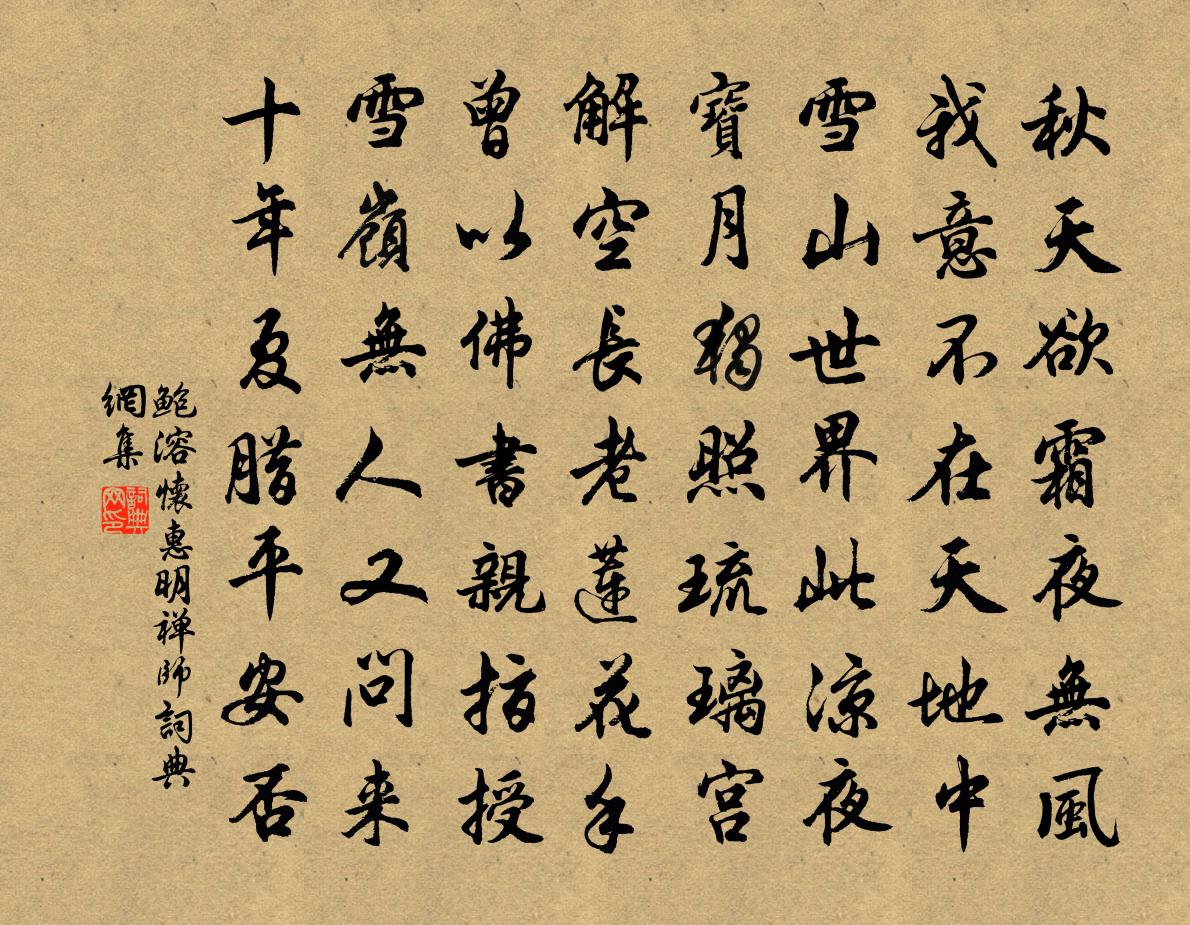 秋天欲霜夜無風
我意不在天地中
雪山世界此涼夜
寶月獨照琉璃宮
解空長老蓮花手
曾以佛書親指授
雪嶺無人又問来
十年夏腊平安否
鮑溶懷惠明禅師詞典
網集
詞典
网印